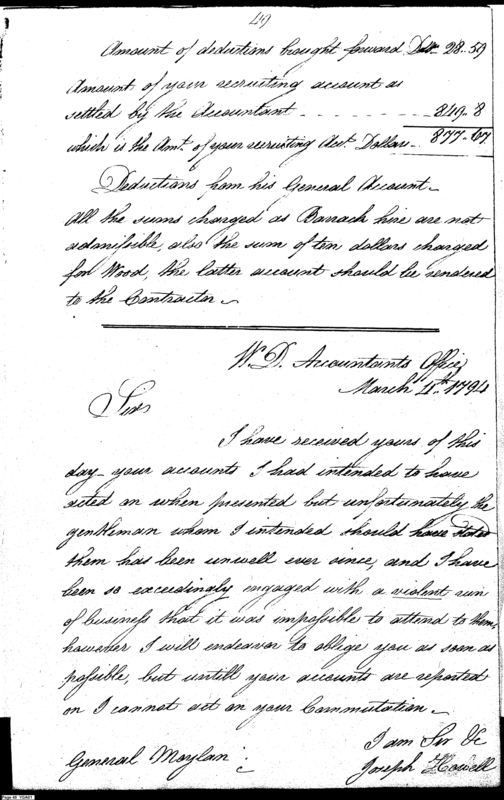 49
Amount of deductions brought forward Dolls 28..59
Amount of your recruiting account as
settled by the Accountant - - - - - - - 849..8
which is the Amt. of your recruiting Acct. Dollars.. 877..67
Deductions from his General Account.
All the sums charged as Barrack hire are not
admissible, also the sum of ten dollars charged
for Wood, the latter account should be rendered
to the Contractor
W. D. Accountants Office
March 11th. 1794
Sir
I have received yours of this
day your accounts I had intended to have
acted on when presented but unfortunately the
gentleman whom I intended should have stated
them has been unwell ever since, and I have
been so exceedingly engaged with a violent run
of business that it was impossible to attend to them,
however I will endeavor to oblige you as soon as
possible, but untill your accounts are reported
on I cannot act on your Commutation.
I am Sir &c
General Moylan
Joseph Howell